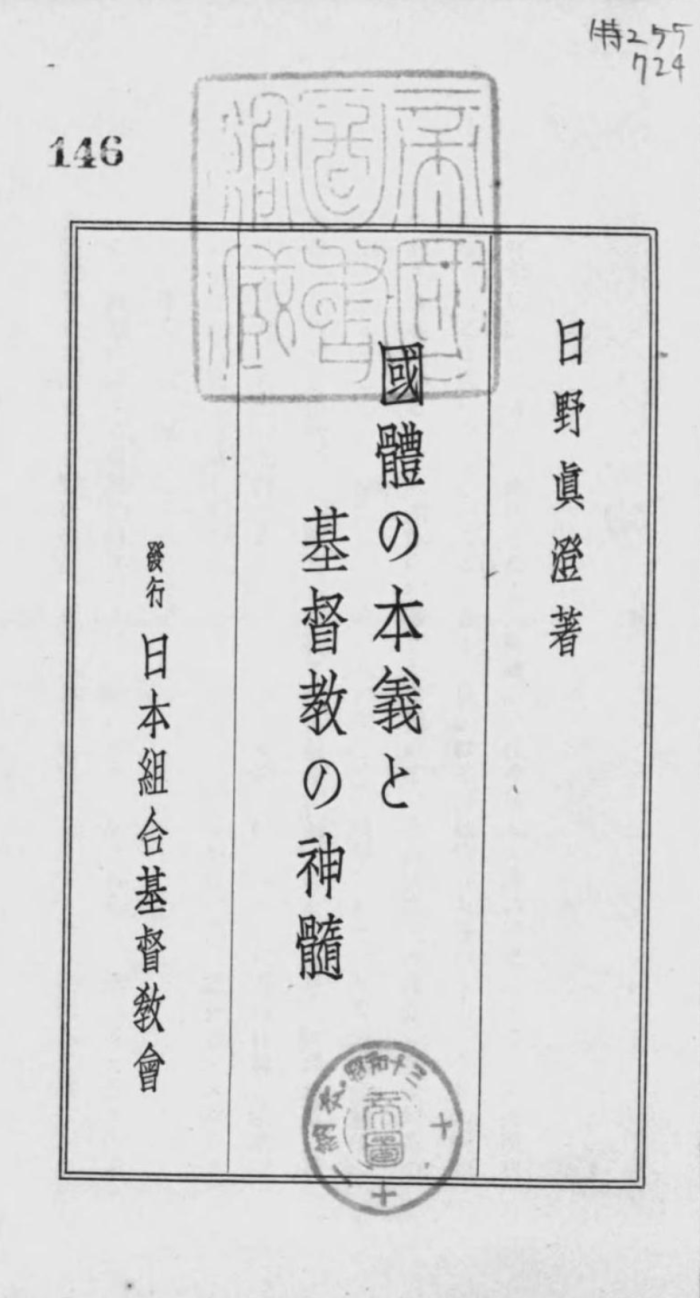 特255
724
146
帝國
圖書
館藏
日野眞澄著
國體の本義と
基督教の神髓
發行 日本組合基督教會
帝圖
昭和十三